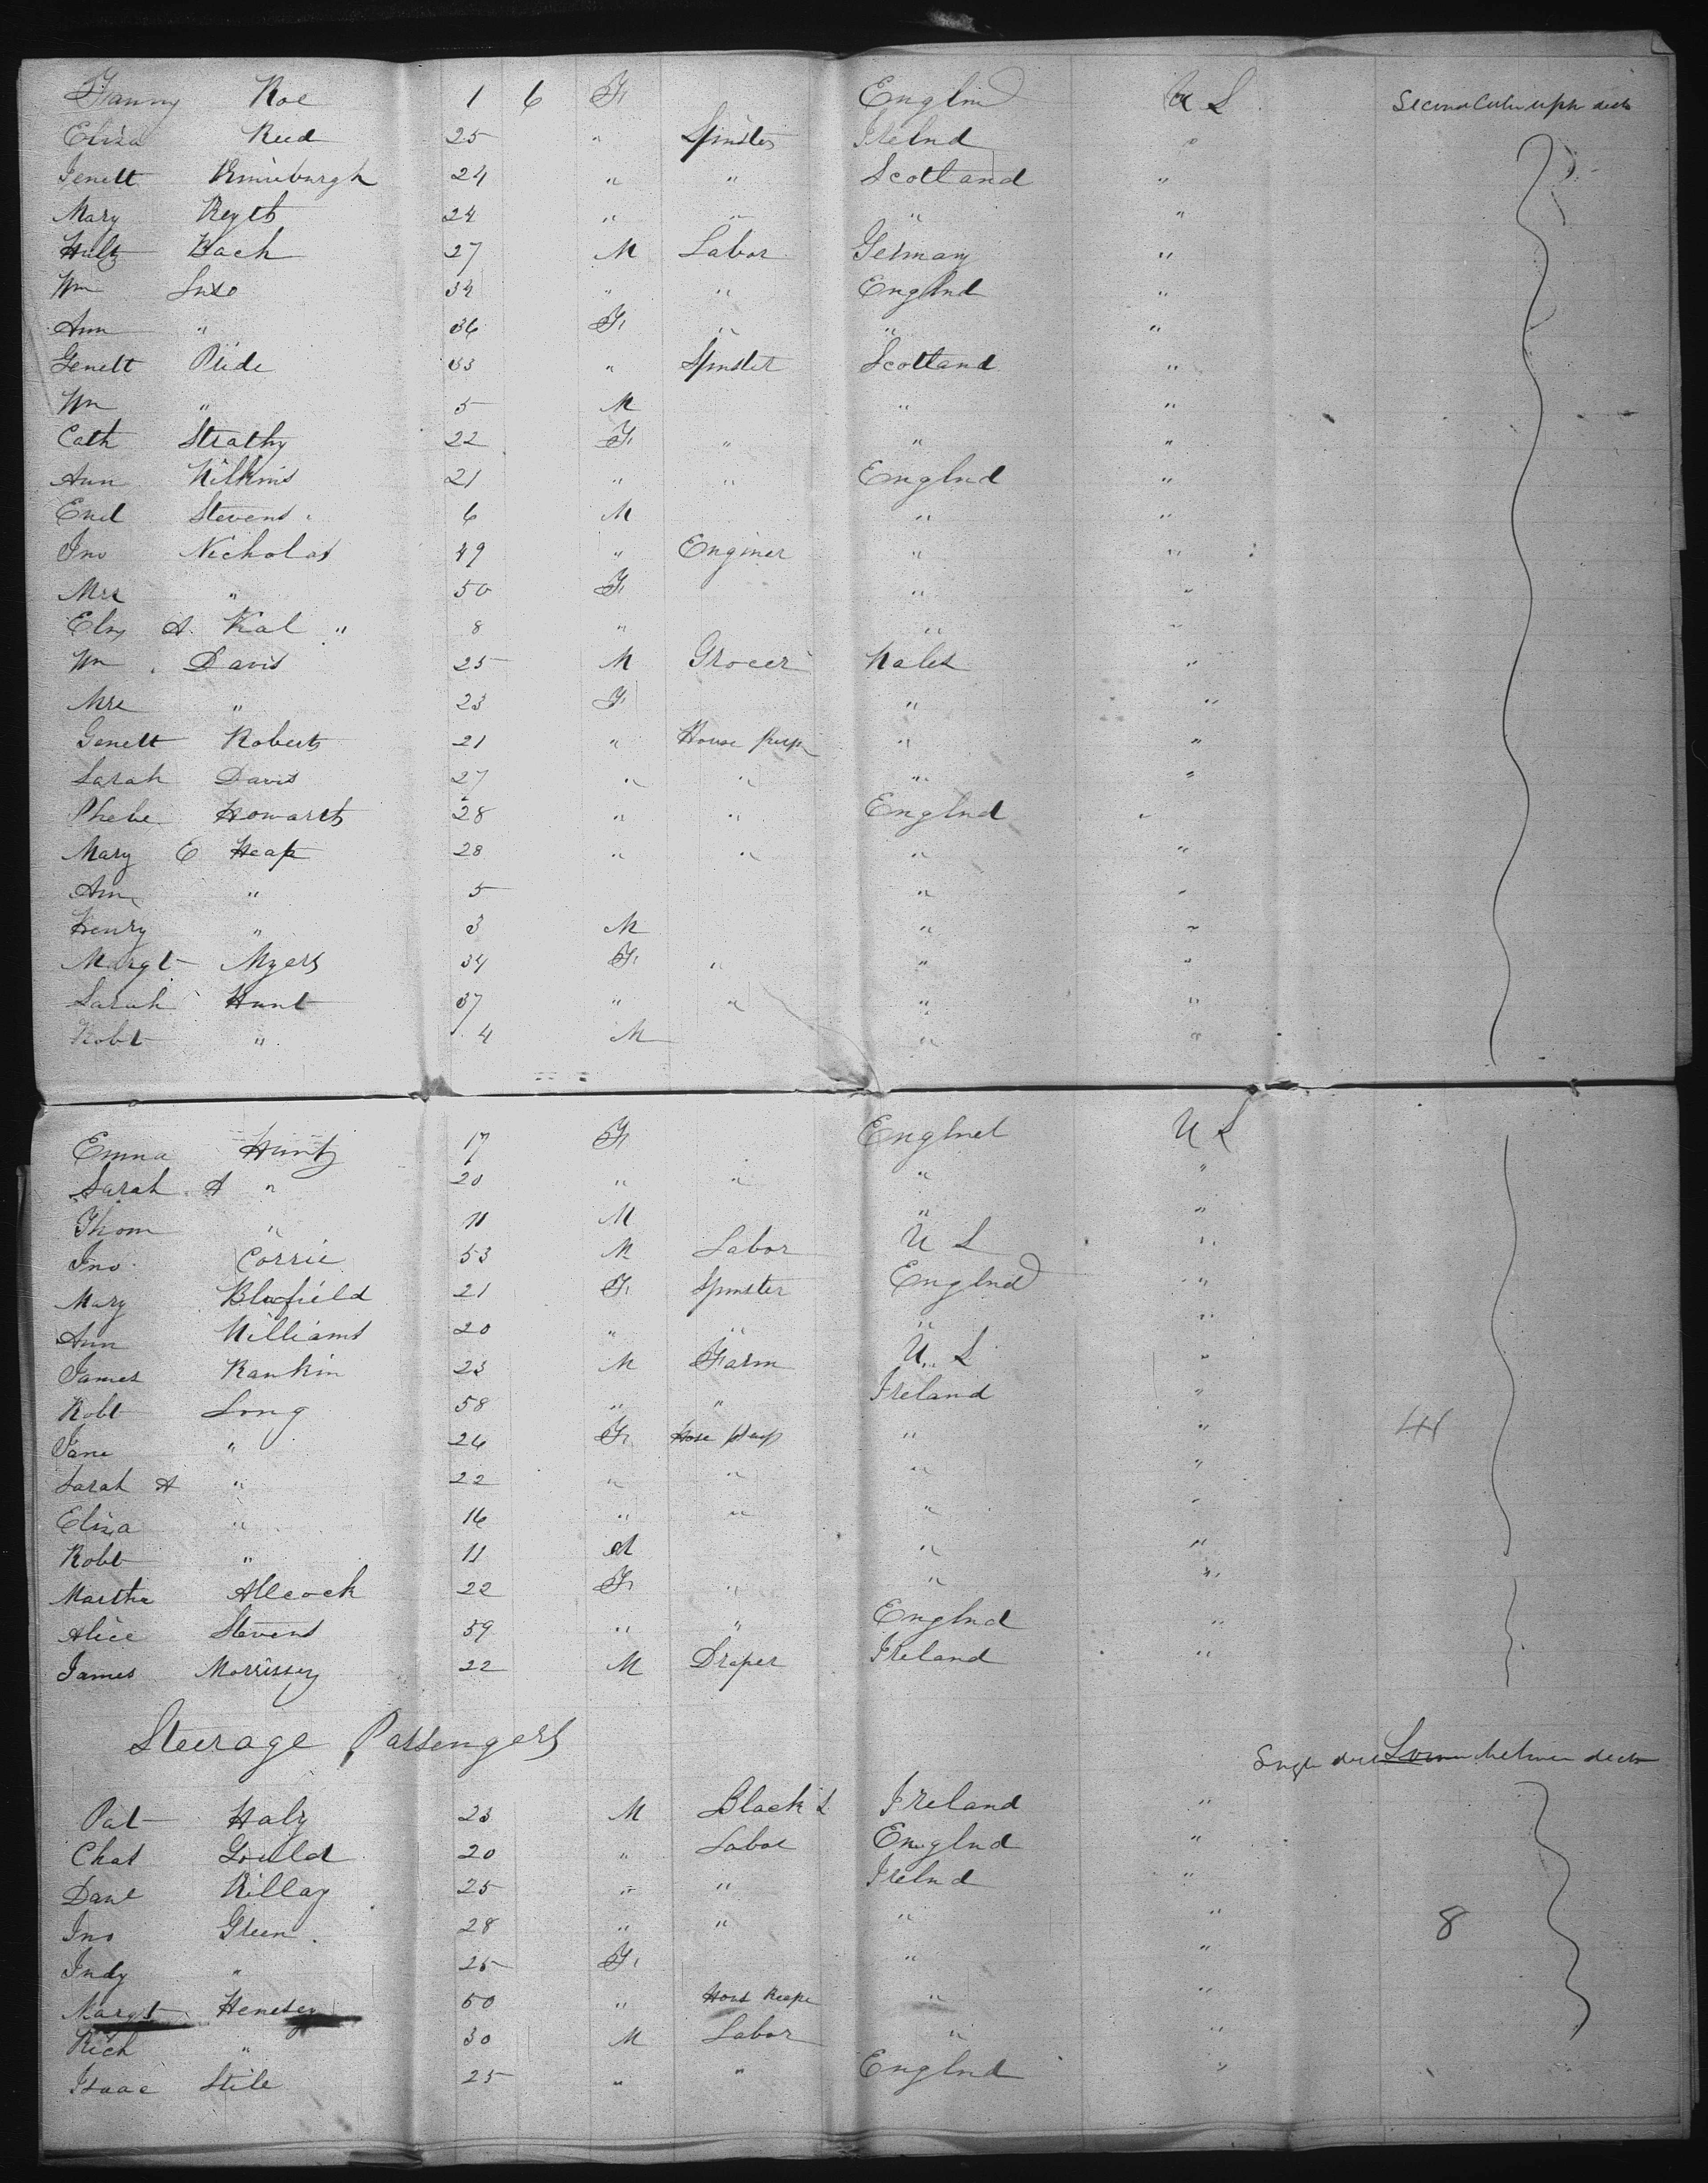 Fanny Roe 1 6 F Englnd U S Second Cabin upper deck
Eliza Reed 25 " Spinster Irelnd "
Jenett 24 " " Scotland "
Mary 24 " " " "
Bach 27 M Labor Germany "
Wm 34 " " Englnd "
Ann " 36 F " " "
Genett Pride 33 " Spinster Scotland "
Wm " 5 M " "
Cath Strathy 22 F " " "
Ann Wilkins 21 " " Englnd "
Stevens 6 M " "
Jno Nicholas 49 " Enginer " "
Mrs " 50 F " "
A. " 8 " " "
Wm Davis 25 M Grocer Wales "
Mrs " 23 F " "
Genett Roberts 21 " House Keep " "
Sarah Davis 27 " " " "
Phebe Howarth 28 " " Englnd "
Mary E Heap 28 " " " "
Ann " 5 " "
Henry " 3 M " "
Margt Myers 34 F " " "
Sarah Hunt 37 " " " "
Robt " 4 M " "
Emma Hunt 17 F Englnd U S
Sarah A " 20 " " " "
Thom " 11 M " "
Jno Corrie 53 M Labor U S "
Mary Blofield 21 F Spinster Englnd "
Ann Williams 20 " " " "
James Rankin 23 M Farm U. S "
Robt Long 58 " " Ireland "
Jane " 26 F House Keep " " 41
Sarah A " 22 " " " "
Eliza " 16 " " " "
Robt " 11 M " "
Martha Allcock 22 F " " "
Alice Stevens 59 " " Englnd "
James Morrissey 22 M Draper Ireland "
Steerage Passengers
between decks
Pat Haly 23 M Black S Ireland "
Chas Gould 20 " Labor Englnd "
Danl Killay 25 " " Irelnd "
Jno Green 28 " " " " 8
Indy " 25 F " "
Margt Henesey 50 " Hous Keepe " "
Rich " 30 M Labor " "
Isaac Stile 25 " " Englnd "